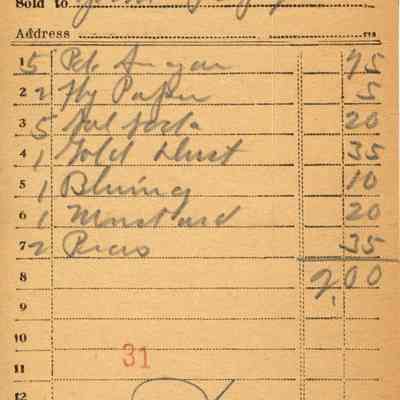 Sold to
Address
1 5 Pk Sugar 45
2 2 Fly Paper 5
3 5 Sal Soda 20
4 1 Gold Dust 35
5 1 Bluing 10
6 1 Mustard 20
7 2 35
8 2,00
9
10
31
11
12